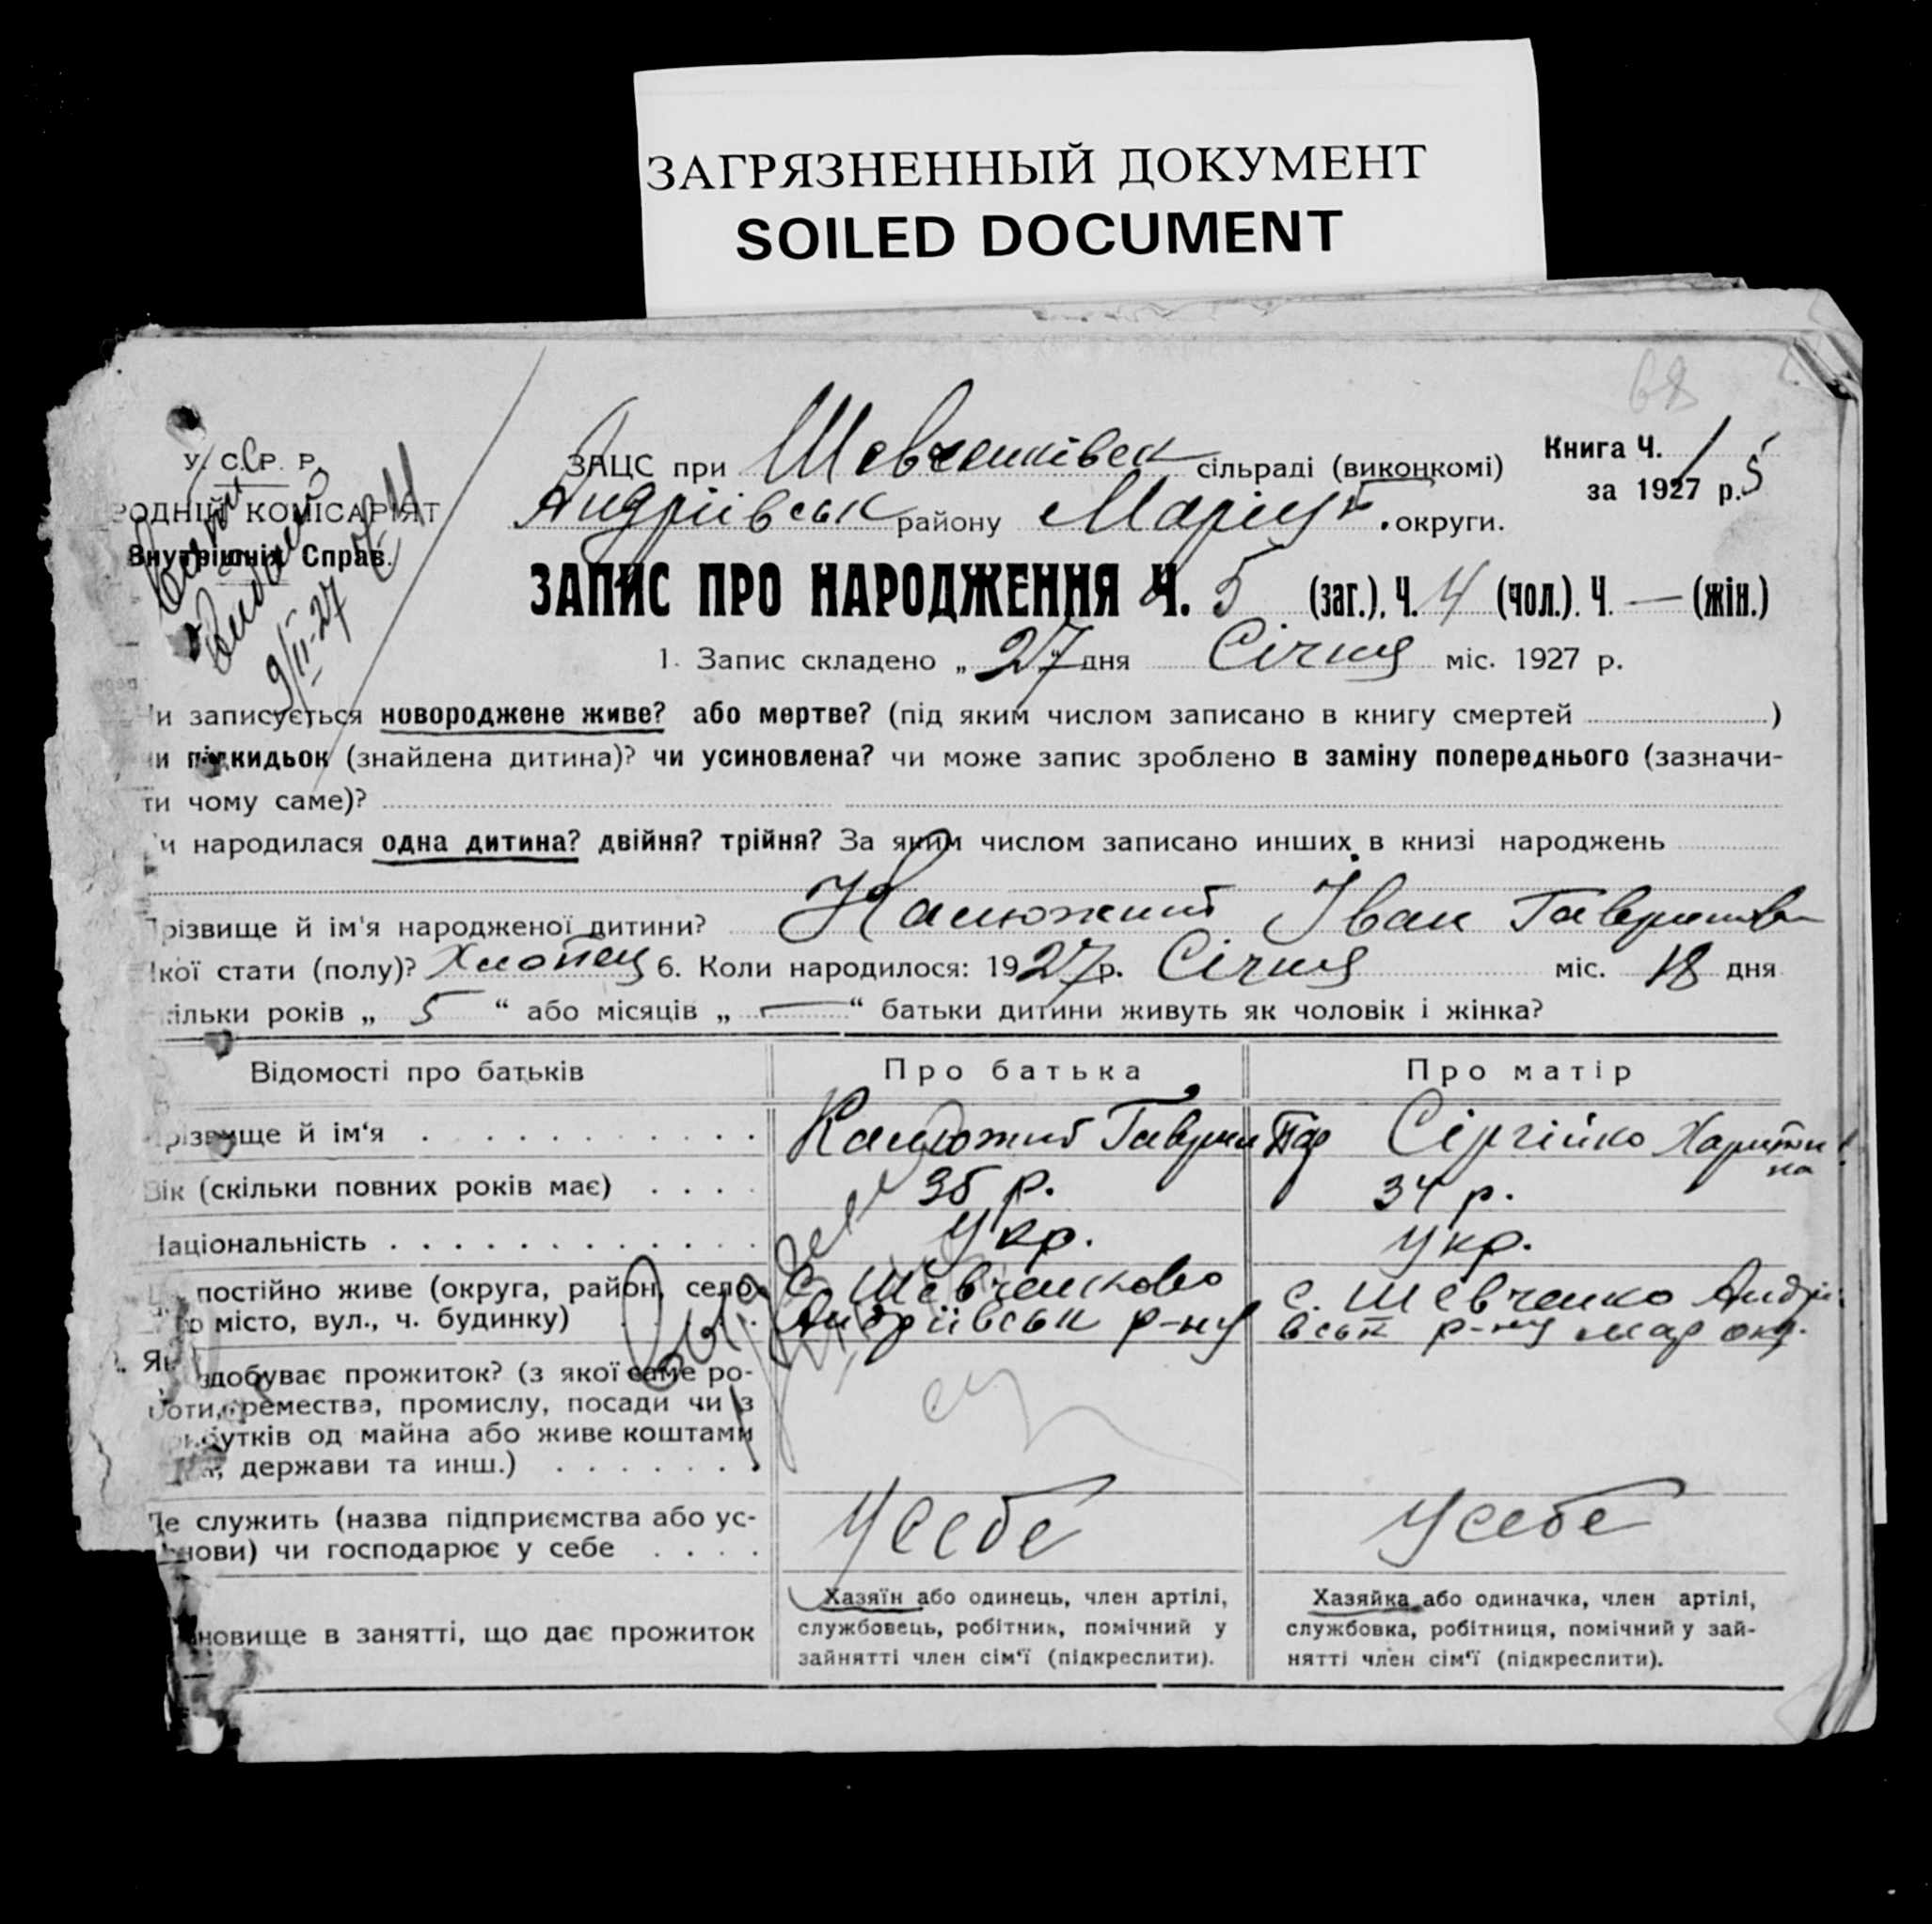 ЗАГРЯЗНЕННЫЙ ДОКУМЕНТ
SOILED DOCUMENT
68
У. С. Р. Р.
РОДНІЙ КОМІСАРІЯТ
Внутрішніх Справ.
9/II-27
ЗАЦС при Шевченківськ сільраді (виконкомі)
Андріївськ району Маріуп. округи.
Книга Ч. 1
за 1927 р. 5
ЗАПИС ПРО НАРОДЖЕННЯ Ч. 5 (заг.), Ч. 4 (чол.). Ч. — (жін.)
1. Запис складено „ 27 " дня Січня міс. 1927 р.
и записується новороджене живе? або мертве? (під яким числом записано в книгу смертей )
и підкидьок (знайдена дитина)? чи усиновлена? чи може запис зроблено в заміну попереднього (зазначи-
ти чому саме)?
и народилася одна дитина? двійня? трійня? За яким числом записано инших в книзі народжень
різвище й ім'я народженої дитини? Калюжний Іван
кої стати (полу)? Хлопець 6. Коли народилося: 1927 р. Січня міс. 18 дня
ільки років „ 5 “ або місяців „ — “ батьки дитини живуть як чоловік і жінка?
Відомості про батьків
Про батька
Про матір
різвище й ім‘я
Калюжний Гаврил
Сіргійко Харитина
Вік (скільки повних років має)
35 р.
34 р.
Національність
Укр.
Укр.
постійно живе (округа, район, село
місто, вул., ч. будинку)
с. Шевченково
Андріївськ р-ну
с. Шевченко Андрі-
вськ р-ну Мар окр.
Як здобуває прожиток? (з якої саме ро-
боти, ремества, промислу, посади чи з
утків од майна або живе коштами
держави та инш.)
Де служить (назва підприємства або ус-
нови) чи господарює у себе
У себе
У себе
новище в занятті, що дає прожиток
Хазяїн або одинець, член артілі,
службовець, робітник, помічний у
зайнятті член сім‘ї (підкреслити).
Хазяйка або одиначка, член артілі,
службовка, робітниця, помічний у зай-
нятті член сім‘ї (підкреслити).